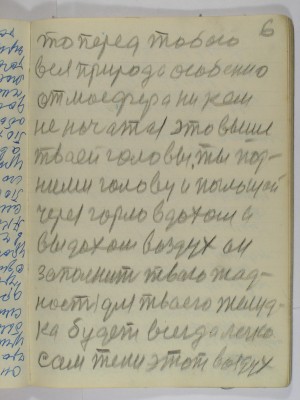 6
то перед тобою
вся природа особенно
атмосфера ни кем
не початая это выше
твоей головы, ты под-
ними голову и поглощай
через горло вдохом и
выдохом воздух он
заполнит твою жад-
ность для твоего желуд-
ка будет всегда легко
сам тяни этот воздух